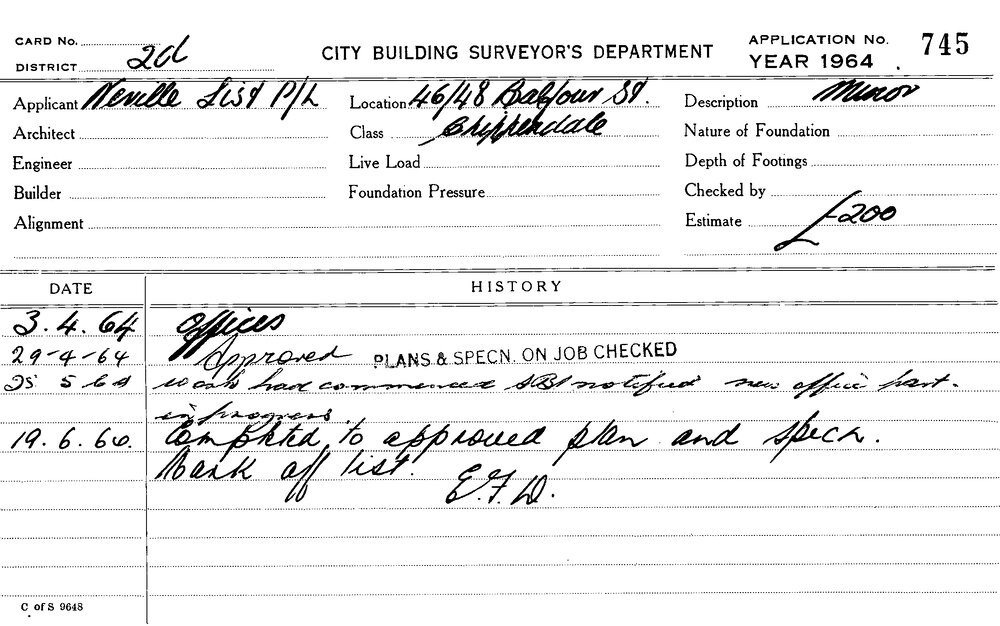 CARD No.
DISTRICT 2d
CITY BUILDING SURVEYOR'S DEPARTMENT
APPLICATION No. 745
YEAR 1964
Applicant Neville List P/L
Location 46/48 Balfour St.
Description Minor
Architect
Class Chippendale
Nature of Foundation
Engineer
Live Load
Depth of Footings
Builder
Foundation Pressure
Checked by
Alignment
Estimate £200
DATE
HISTORY
3.4.64 Offices
29-4-64 Approved PLANS & SPECN. ON JOB CHECKED
25 5 64 work had commenced notified new office part.
in progress.
19.6.64. Completed to approved plan and specn.
Mark off list. E.F.D.
C of S 9648